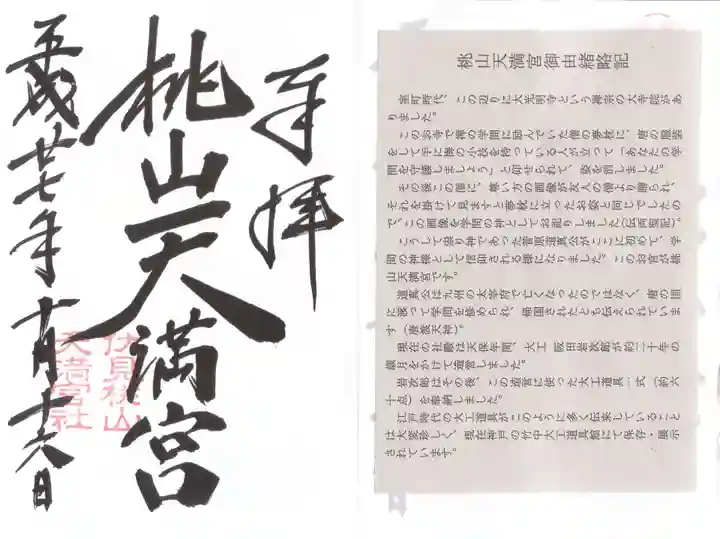 奉拝
桃山天満宮
伏見桃山
天満宮社
平成廿七年十一月十六日
桃山天満宮御由緒略記
室町時代、この辺りに大光明寺という禅宗の大寺院があ
りました。
このお寺で禅の学問に励んでいた僧の夢枕に、唐の服装
をして手に梅の小枝を持っている人が立って「あなたの学
問を守護しましょう」と仰せられて、姿を消しました。
その後この僧に、尊い方の画像が友人の僧より贈られ、
それを掛けて見ますと夢枕に立ったお姿と同じでしたの
で、この画像を学問の神としてお祀りしました(臥雲日件録)。
こうして怨り神であった菅原道真公がここに初めて、学
問の神様として信仰される様になりました。このお宮が桃
山天満宮です。
道真公は九州の太宰府で亡くなったのではなく、唐の国
に渡って学問を修められ、帰国されたとも伝えられていま
す(渡唐天神)。
現在の社殿は天保年間、大工 阪田岩次郎が約二十年の
歳月をかけて造営しました。
岩次郎はその後、この造営に使った大工道具一式(約六
十点)を奉納しました。
江戸時代の大工道具がこのように多く伝来していること
は大変珍しく、現在神戸の竹中大工道具館にて保存・展示
されています。